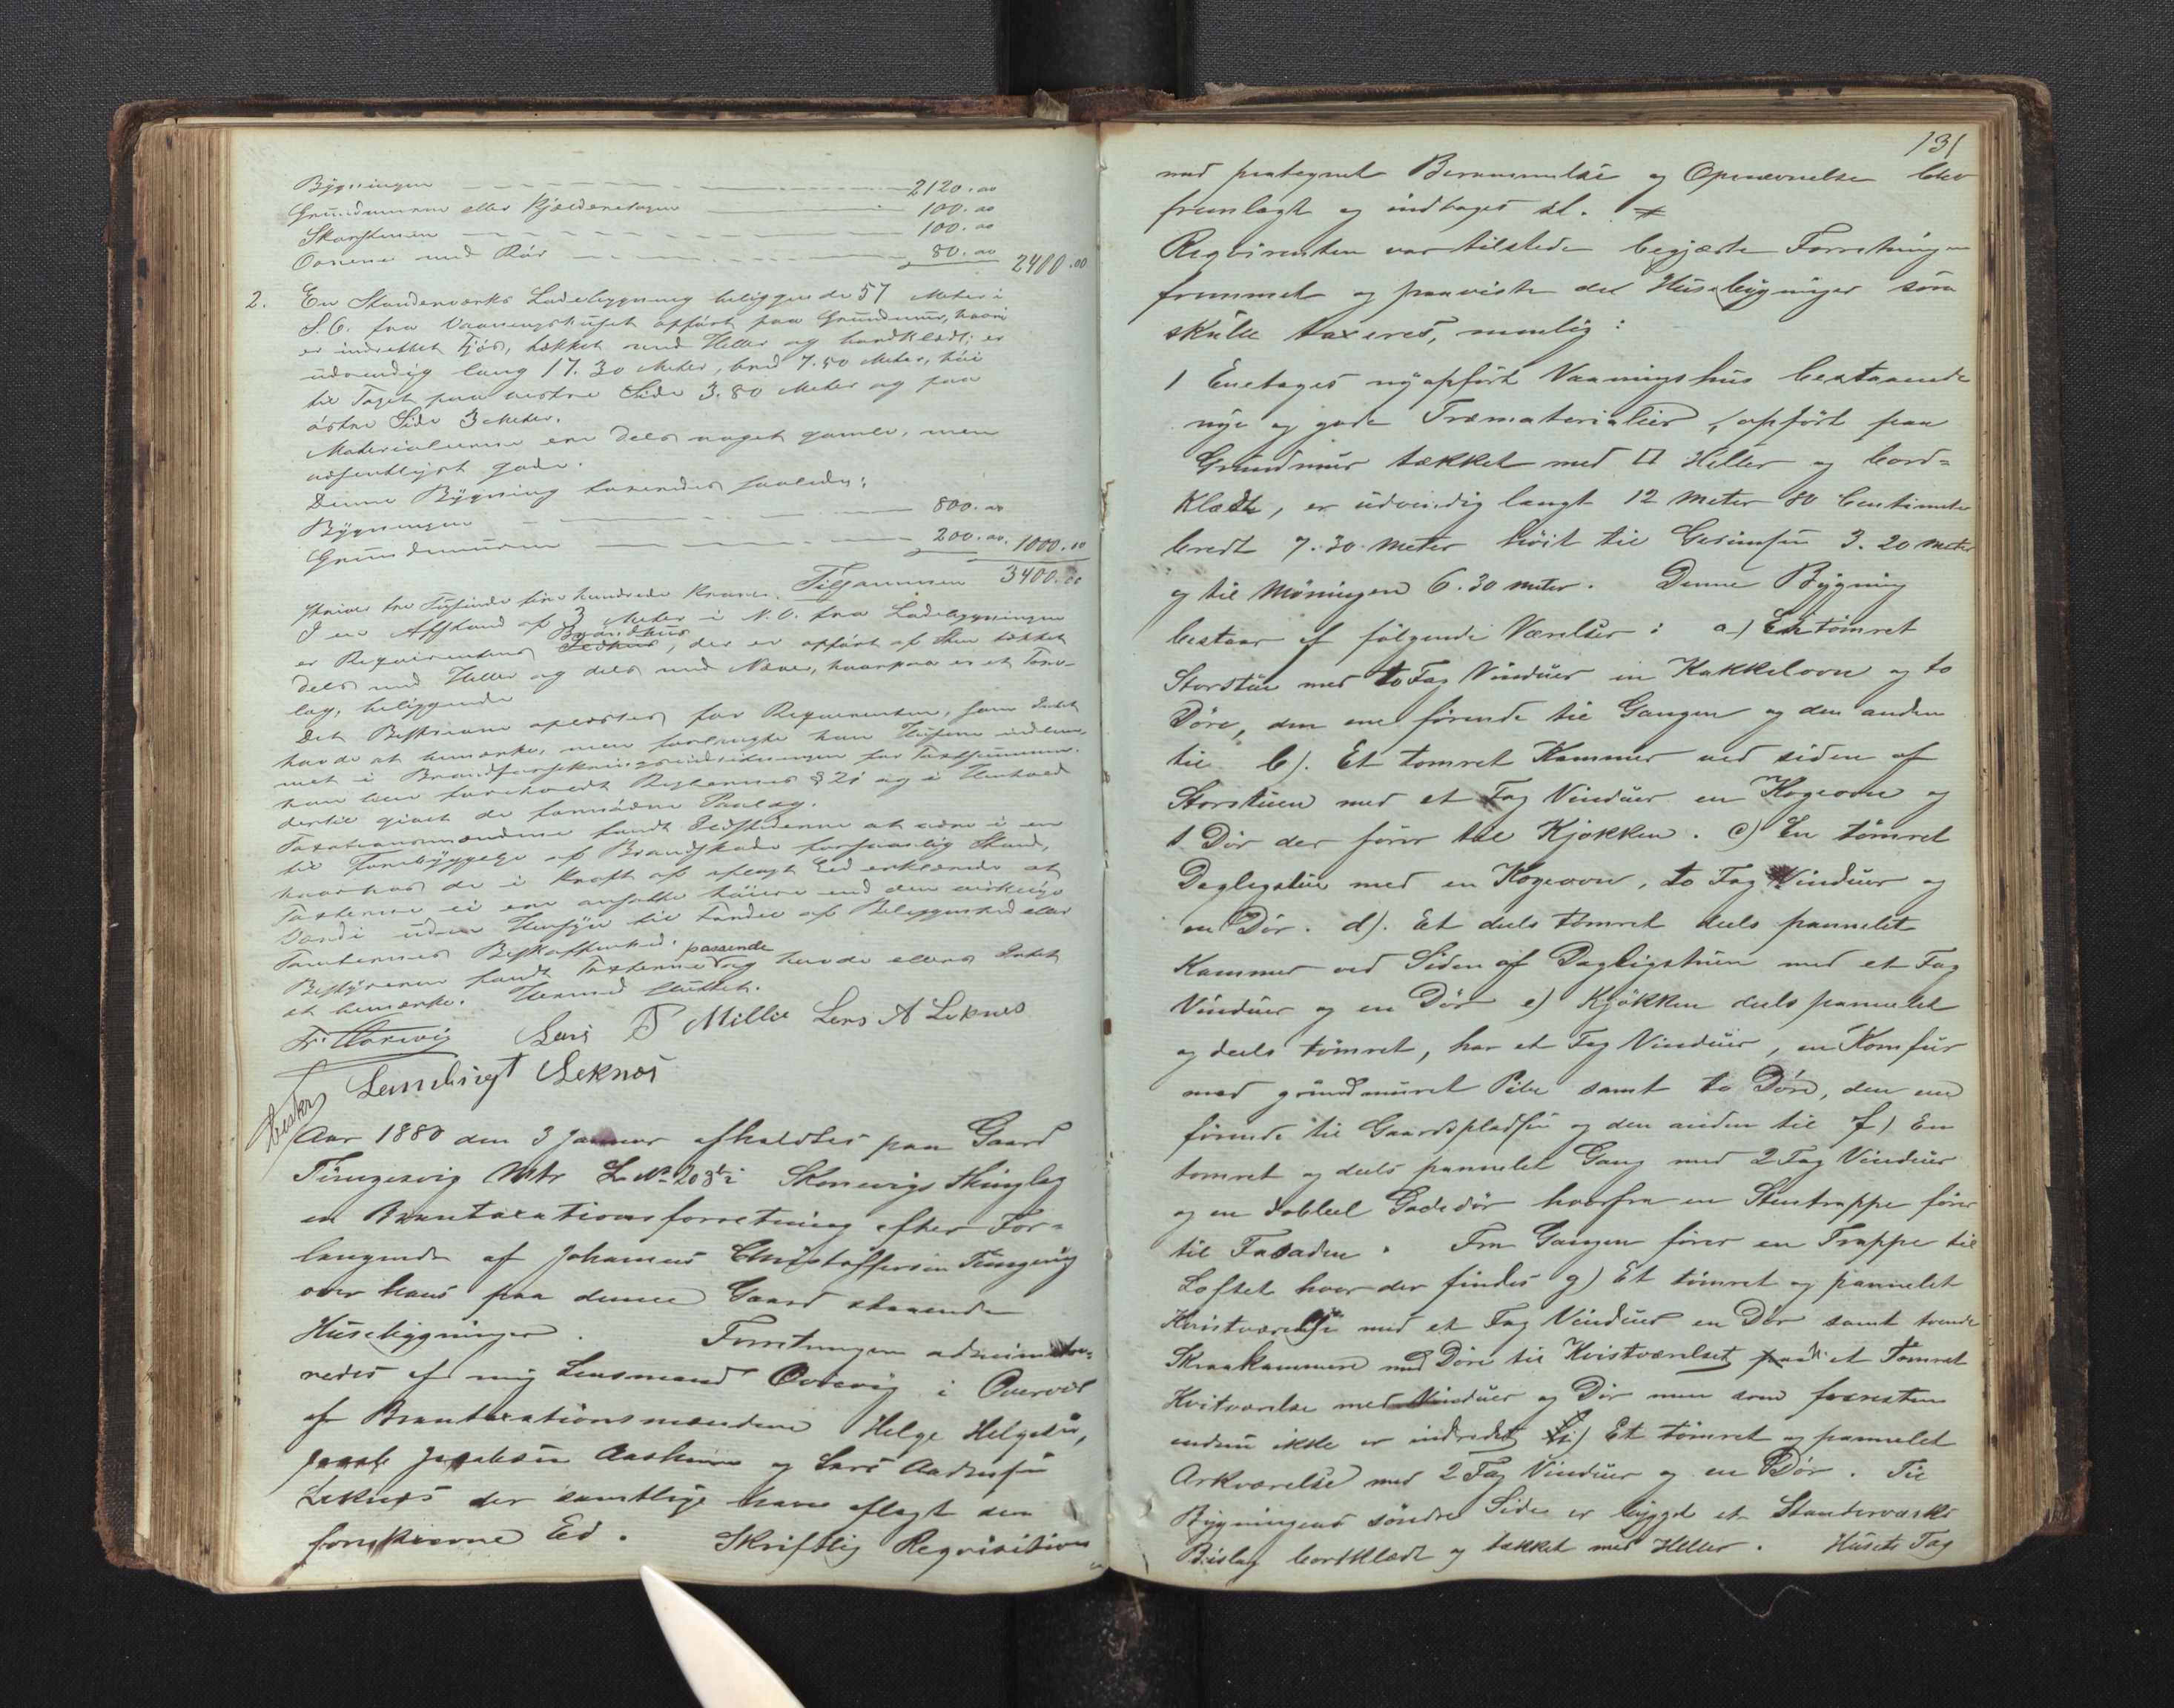 Bÿgningen 2120.00
Grundmuren eller Kjælderetagen 100.00
Skorstenen 100.00
Ovnene med Rör 80.00 2400.00
2. En Stenderværks Ladebygning beliggende 57 Meter i
S. O. fra Vaaningshuset opfört paa Grundmur, hvori
er indrettet Fjös, tækket med Heller og bordklædt; er
udvendig lang 17.30 Meter, bred 7.50 Meter, höi
til Taget paa vestre Side 3.80 Meter og paa
östre Side 3 Meter.
Materialierne ere dels noget gamle, men
væsentligst gode.
Denne Bÿgning taxeredes saaledes:
Bÿgningen 800.00
Grundmuren 200.00. 1000.00
Tilsammen 3400.00
skriver tre Tusinde fire hundrede Kroner.
I en Afstand af 3 Meter i N.O. fra Ladebygningen
er Requirentens Ildhus, der er opfört af Sten tækket
Brandhus
dels med Heller og dels med Næver, hvorpaa er et Torv-
lag, beliggende
Det Beskrevne oplæstes for Requirenten, som Intet
havde at bemærke, men forlangte han Husene indlem-
met i Brandforsikringsindretningen for Taxtsummen.
han blev foreholdt Reglernes § 21 og i Henhold
dertil givet de fornödne Paalæg.
Taxationsmændene fandt Ildstederne at være i en
til Forebÿggelse af Brandskade forsvarlig Stand,
hvorhos de i Kraft af aflagt Ed erklærede at
Taxterne ei ere ansatte höiere end den virkelige
Værdi uden Hensyn til Fordel af Beliggenhed eller
Tomternes Beskaffenhed.
Bestÿreren fandt Taxterne passende og havde ellers Intet
at bemærke. Hermed sluttet.
Lars P Millie Lars A Leknes
Leknes
Aar 1880 den 3 Januar afholdtes paa Gaard
Tungesvig Mtr L No 208 i Skonevigs Thinglag
en Branntaxationsforretning efter For-
langende af Johannes Christoffersen Tungesvig
over hans paa denne Gaard staaende
Husebygninger. Forretningen administre-
redes af mig Lensmand Oversvig i Overvær
af Branntaxationsmændene Helge Helgesen,
Jacob Jacobsen Aasheim og Lars Andersen
Leknæs der samtlige have aflagt den
foreskrevne Ed. Skriftlig Reqvisition
131
med paategnet Berammelse og Opnævnelse blev
fremlagt og indtages sl. +
Reqvirenten var tilstede begjærte Forretningen
fremmet og paaviste de Husebÿgninger som
skulle taxeres, nemlig:
1 Enetages nÿopfört Vaaningshus bestaaende
nÿe og gode Træmaterialier, opfört paa
Grundmur tækket med □ Heller og bord-
klædt, er udvendig langt 12 Meter 80 Centimeter
bredt 7.30 Meter höit til Gesimsen 3.20 Meter
og til Möningen 6.30 meter. Denne Bÿgning
bestaar af fölgende Værelser: a) En tömret
Storstue med to Fag Vinduer en Kakkelovn og to
Döre, den ene förende til Gangen og den anden
til b). Et tomret Kammer ved siden af
Storstuen med et Fag Vinduer en Kogeovn og
1 Dör der förer til Kjökken. c) En tömret
Dagligstue med en Kogeovn, to Fag Vinduer og
en Dör. d). Et deels tömret deels pannelet
Kammer ved Siden af Dagligstuen med et Fag
Vinduer og en Dör e) Kjökken deels pannelet
og deels tömret, har et Fag Vinduer, en Komfur
med grundmuret Pibe samt to Döre, den ene
förende til Gaardspladsen og den anden til f) En
tomret og deels pannelet Gang med 2 Fag Vinduer
og en dobbel Gadedör hvorfra en Stentrappe förer
til Fasaden. Fra Gangen förer en Trappe til
Loftet hvor der findes g) Et tömret og pannelet
Kvistværelse med et Fag Vinduer en Dör samt tvende
Skraakammere med Döre til Kvistværelset h. et Tomret
Kvitværelse med Vinduer og Dör men som forresten
endnu ikke er indredet i) Et tömret og pannelet
Arkværelse med 2 Fag Vinduer og en Dör. Til
Bÿgningens söndre Side er bÿgd et Stænderværks
Bislag bordklædt og tækket med Heller. Husets Tag